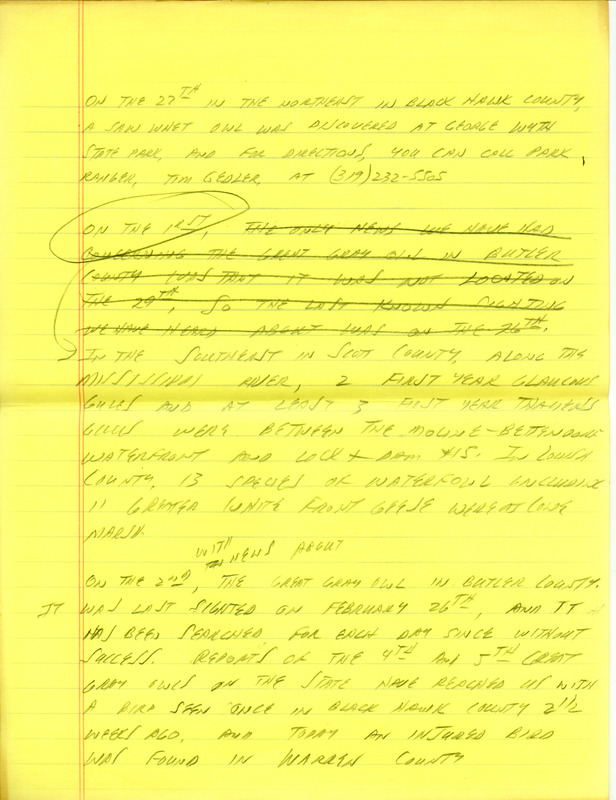 ON THE 27TH IN THE NORTHEAST IN BLACK HAWK COUNTY,
A SAW WHET OWL WAS DISCOVERED AT GEORGE WYTH
STATE PARK, AND FOR DIRECTIONS, YOU CAN CALL PARK
RANGER, TIM GEDLER, AT (319)232-5505
ON THE 1RST, THE ONLY NEWS WE HAVE HAD
CONCERNING THE GREAT GRAY OWL IN BUTLER
COUNTY WAS THAT IT WAS NOT LOCATED ON
THE 29TH, SO THE LAST KNOWN SIGHTING
WE HAVE HEARD ABOUT WAS ON THE 26TH.
IN THE SOUTHEAST IN SCOTT COUNTY, ALONG THE
MISSISSIPPI RIVER, 2 FIRST YEAR GLAUCOUS
GULLS AND AT LEAST 3 FIRST YEAR THAYERS
GULLS WERE BETWEEN THE MOLINE-BETTENDORF
WATERFRONT AND LOCK + DAM #15. IN LOUISA
COUNTY, 13 SPECIES OF WATERFOWL INCLUDING
11 GREATER WHITE FRONT GEESE WERE AT CONE
MARSH.
WITH NEWS ABOUT
ON THE 2ND, THE GREAT GRAY OWL IN BUTLER COUNTY.
IT WAS LAST SIGHTED ON FEBRUARY 26TH, AND IT
HAS BEEN SEARCHED FOR EACH DAY SINCE WITHOUT
SUCCESS. REPORTS OF THE 4TH AND 5TH GREAT
GRAY OWLS IN THE STATE HAVE REACHED US WITH
A BIRD SEEN ONCE IN BLACK HAWK COUNTY 2 1/2
WEEKS AGO, AND TODAY AN INJURED BIRD
WAS FOUND IN WARREN COUNTY